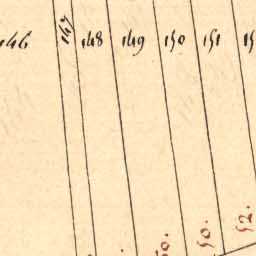 146 147 148 149 150 151
50. 52.